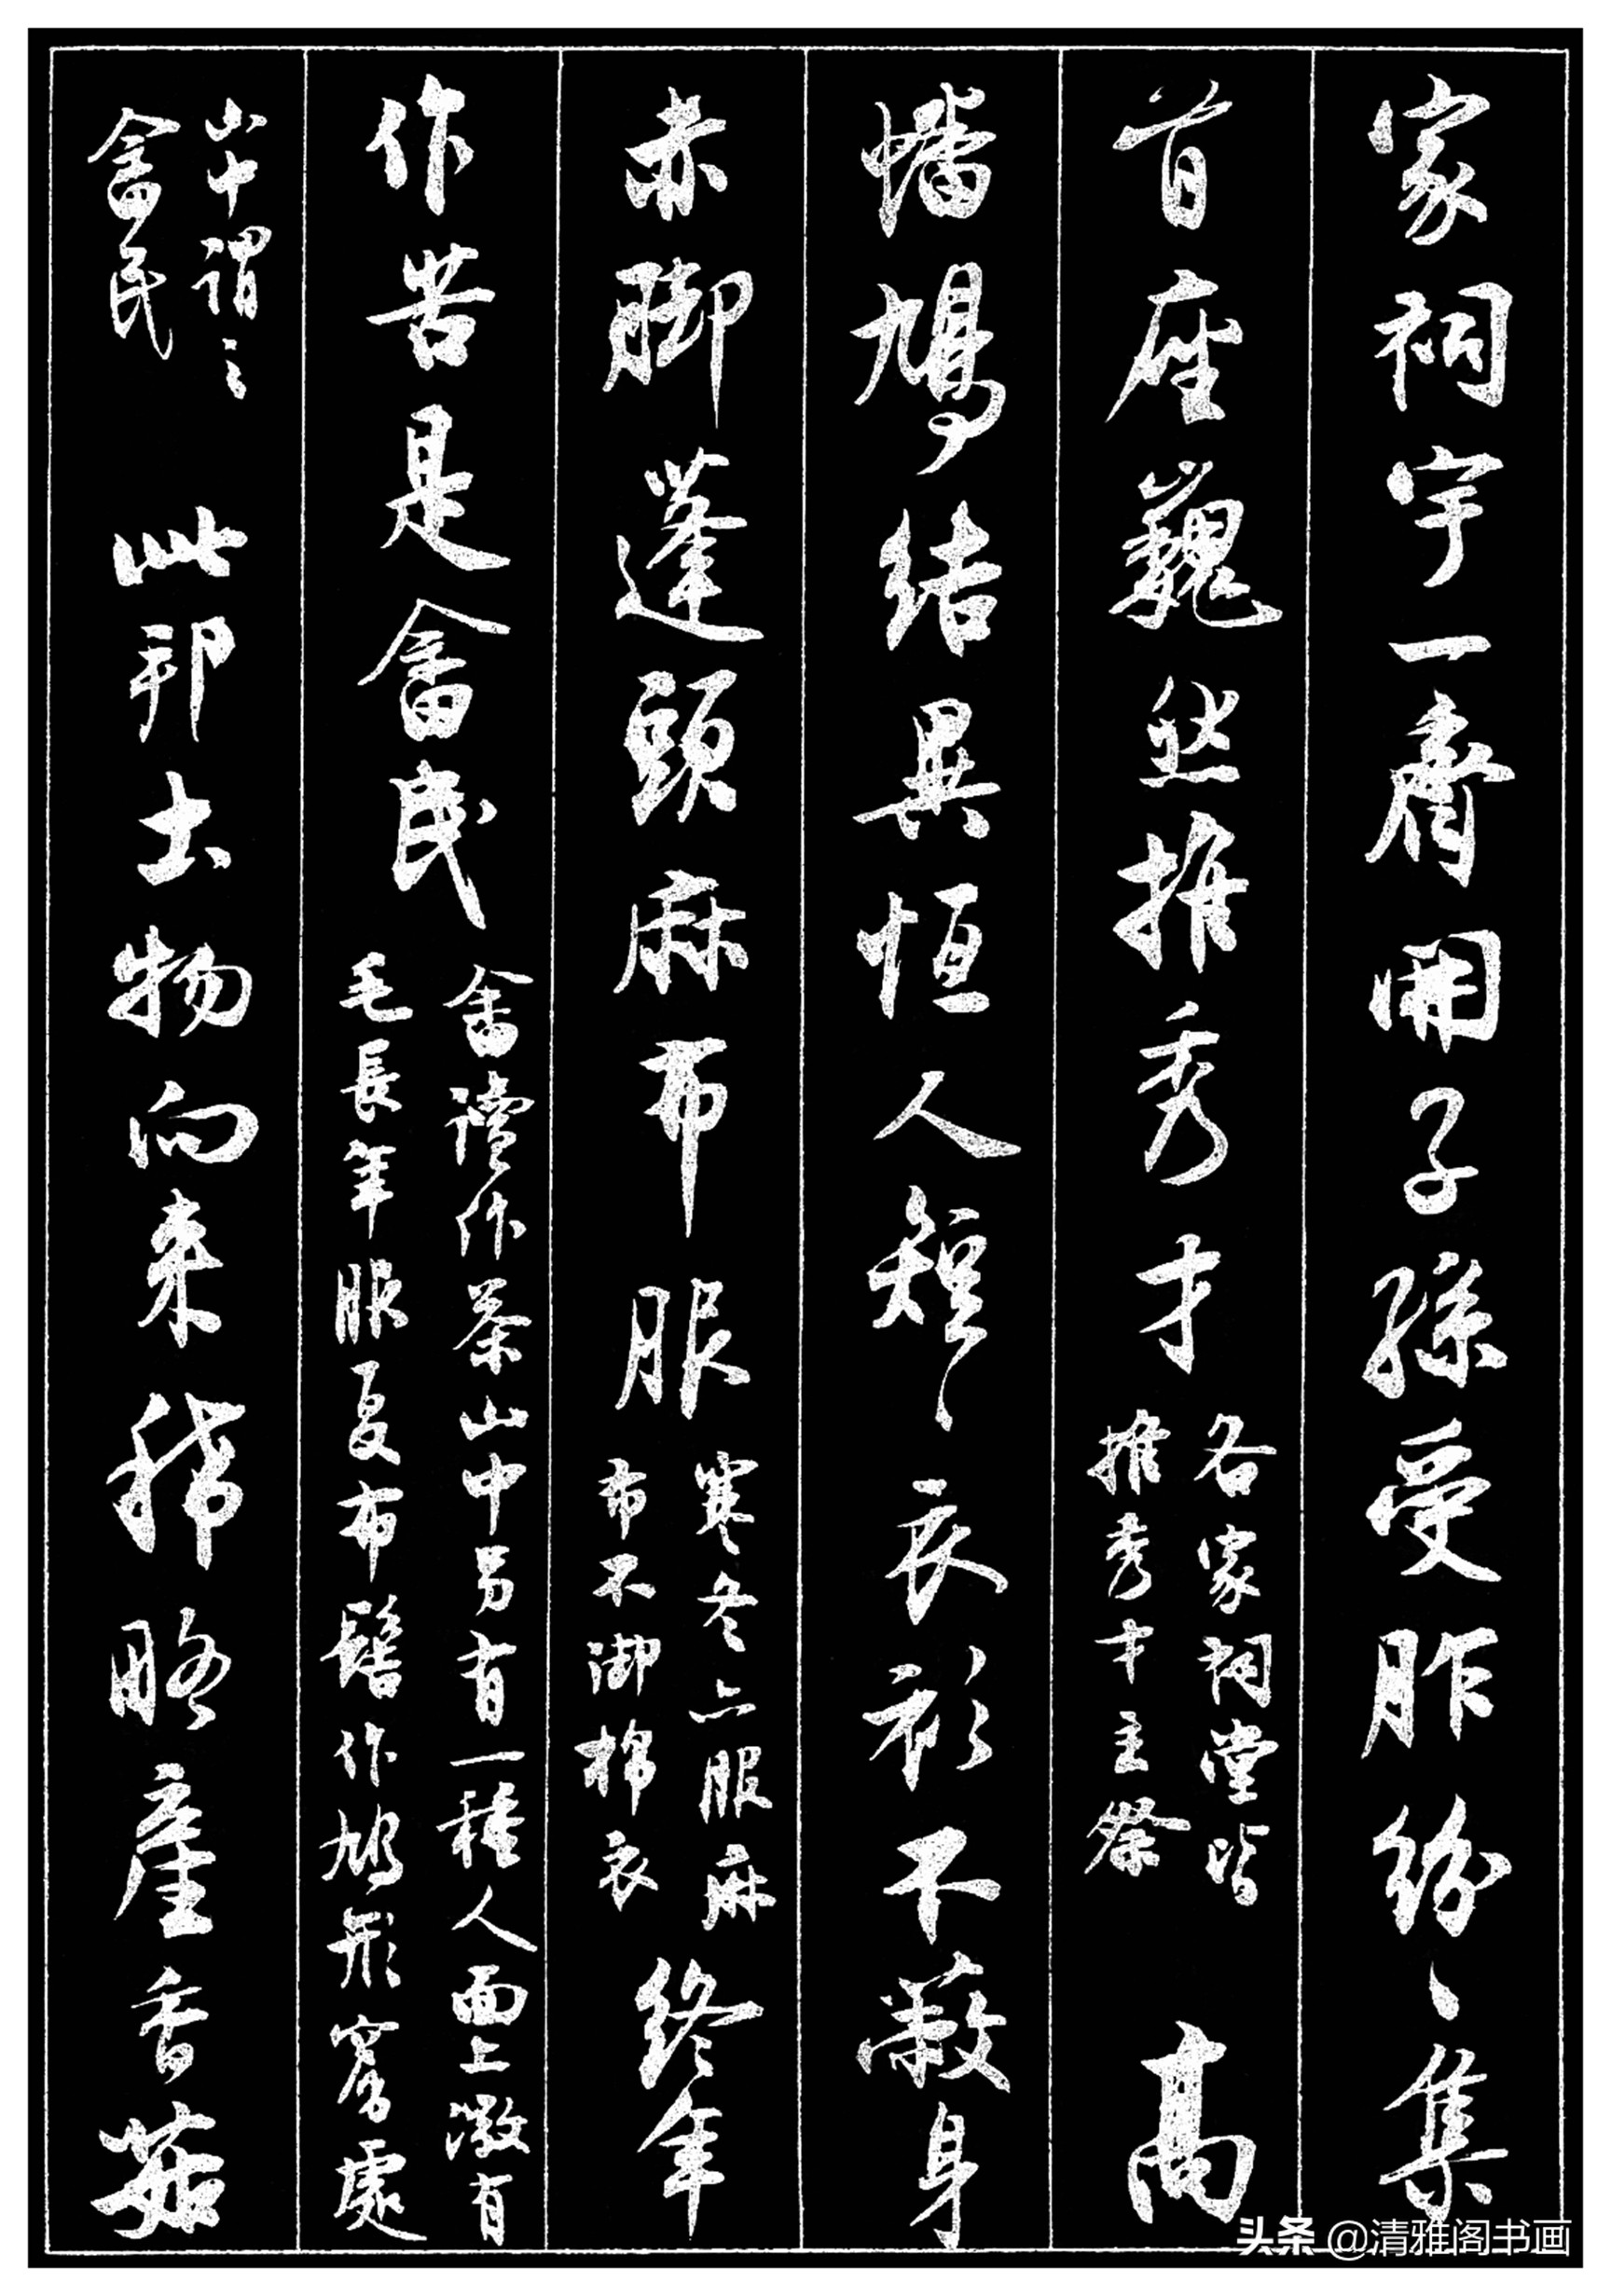 家祠宇一齊開子孫受胙紛〻集
首座巍然推秀才
各家祠堂皆
推秀才主祭
高
幡鳩結異恒人短〻衣衫不蔽身
赤脚蓬頭麻布服
寒冬亦服麻
布不御棉衣
終年
作苦是畲民
畲讀作茶山中另有一種人面上微有
毛長年服夏布髻作鳩形窮處
山中謂之
畲民
此邦土物向来稀略產香菇
头条 @清雅阁书画